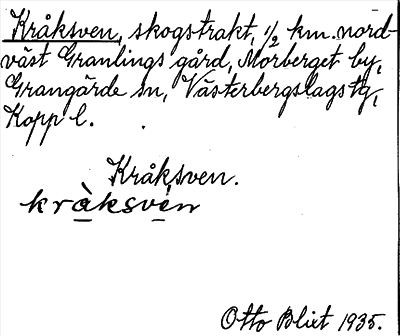 Kråksven, skogstrakt, 1/2 km. nord-
väst Granlings gård, Morberget by,
Grangärde sn, Västerbergslags tg,
Kopp l.
Kråksven.
kràksvèn
Otto Blixt 1935.